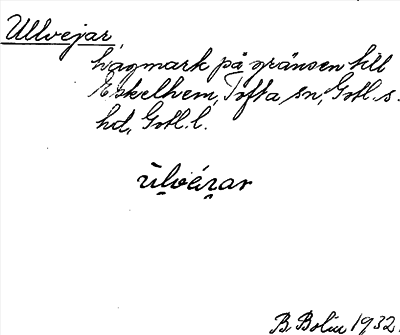 Ullvejar,
hagmark på gränsen till
Eskelhem, Tofta sn, Gotl. s.
hd, Gotl. l.
ūlvérar
B Bolin 1932.